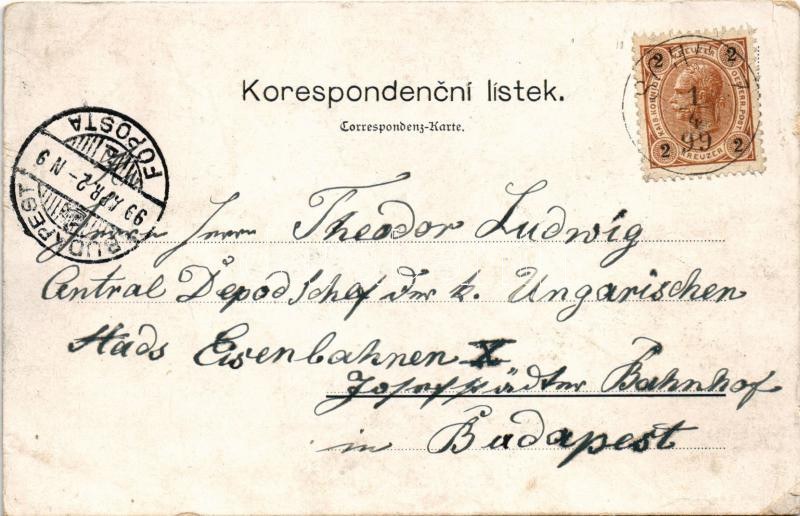 Korespondenční lístek.
Correspondenz-Karte.
2 KREUZER 2
2 KREUZER 2
1
4
99
BUDAPEST
99 APR. 2 - N 9
FŐPOSTA
Herrn Theodor Ludwig
Central Depod Schef der k. Ungarischen
Stads Eisenbahnen X
Josefstädter Bahnhof
in Budapest